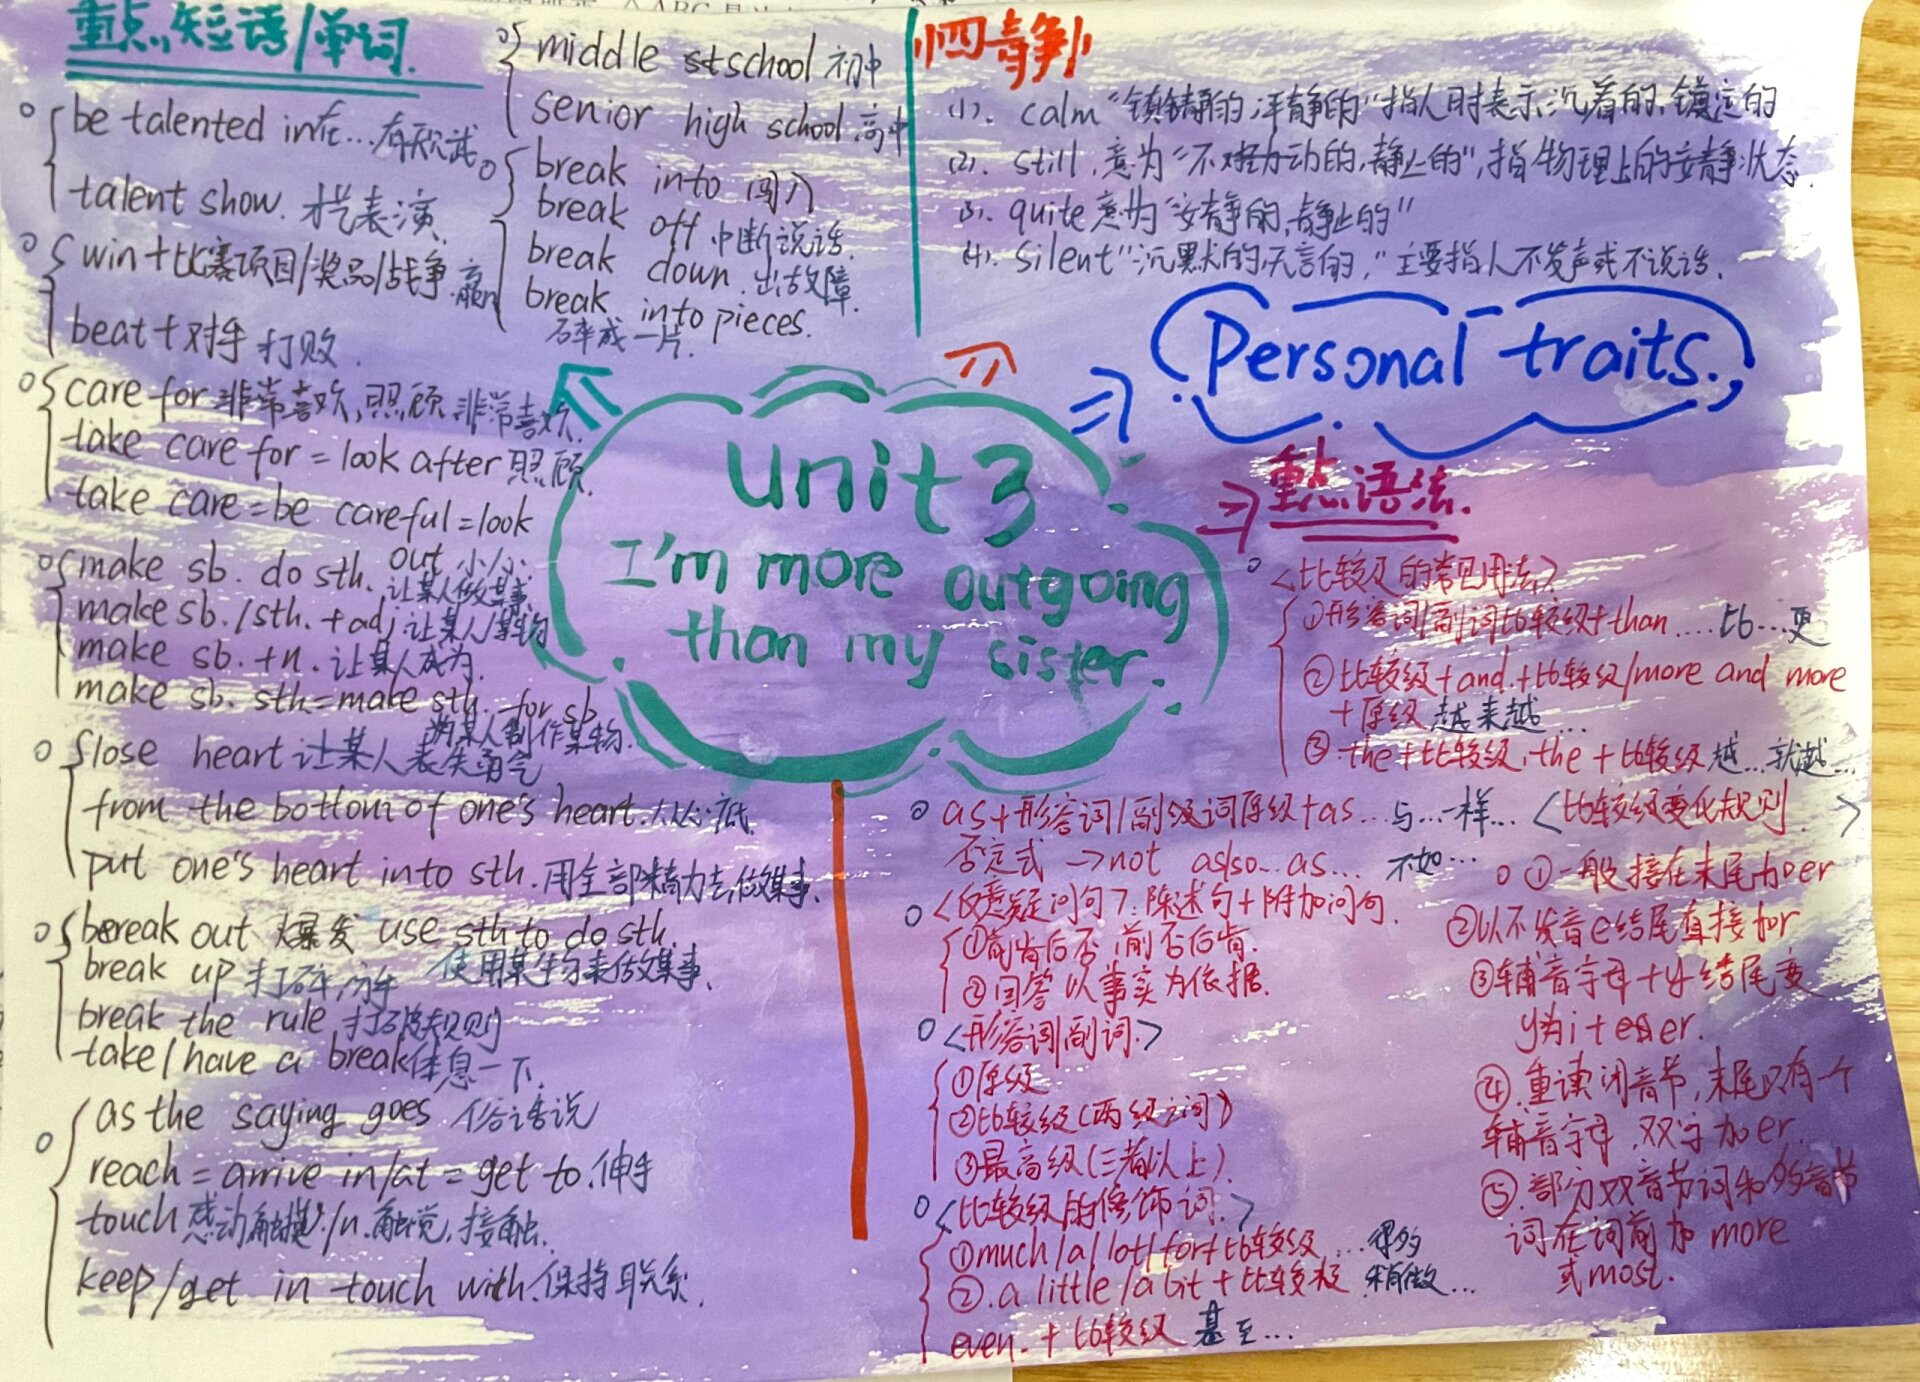 重点短语/单词.
be talented in在...有天赋
talent show. 才艺表演
win+比赛项目/奖品/战争.赢
beat+对手 打败.
care for 非常喜欢,照顾 非常喜欢.
take care for = look after 照顾.
take care=be careful=look
out 小心
make sb. do sth. 让某人做某事
make sb./sth. +adj 让某人/某物
make sb. +n. 让某人成为.
make sb. sth=make sth. for sb
为某人制作某物.
lose heart 让某人丧失勇气
from the bottom of one's heart.从心底.
put one's heart into sth.用全部精力去做某事.
break out 爆发 use sth to do sth.
使用某物来做某事.
break up 打碎,分手
break the rule 打破规则
take/have a break休息一下.
as the saying goes 俗话说
reach = arrive in/at = get to.伸手
touch 感动触摸v./n.触觉,接触.
keep/get in touch with.保持联系.
middle school 初中
senior high school.高中
break into 闯入
break off 中断说话.
break down.出故障.
break into pieces.
碎成一片.
四静
(1). calm "镇静的,平静的"指人时表示沉着的,镇定的
(2). still,意为"不动的,静止的",指物理上的安静状态.
(3). quite 意为"安静的,静止的"
(4). silent"沉默的,无言的,"主要指人不发声或不说话.
Personal traits.
unit 3
I'm more outgoing
than my sister.
重点语法.
<比较级的常见用法>
①形容词/副词比较级+than....比...更
②比较级+and.+比较级/more and more
+原级 越来越...
③.the+比较级,the+比较级 越...就越...
as+形容词/副级词原级+as...与...一样...
否定式→not as/so...as... 不如...
<反意疑问句>:陈述句+附加问句.
①前肯后否,前否后肯.
②回答以事实为依据.
<形容词/副词.>
①原级
②比较级(两级之间)
③最高级(三者以上)
<比较级的修饰词.>
①much/a lot/far+比较级...得多
②.a little/a bit+比较级 稍微...
even.+比较级 甚至...
<比较级变化规则.>
①一般接在末尾加er
②以不发音e结尾直接加r
③辅音字母+y结尾变
y为i+er.
④.重读闭音节,末尾只有一个
辅音字母.双写加er.
⑤.部分双音节词和多音节
词在词前加more
或most.